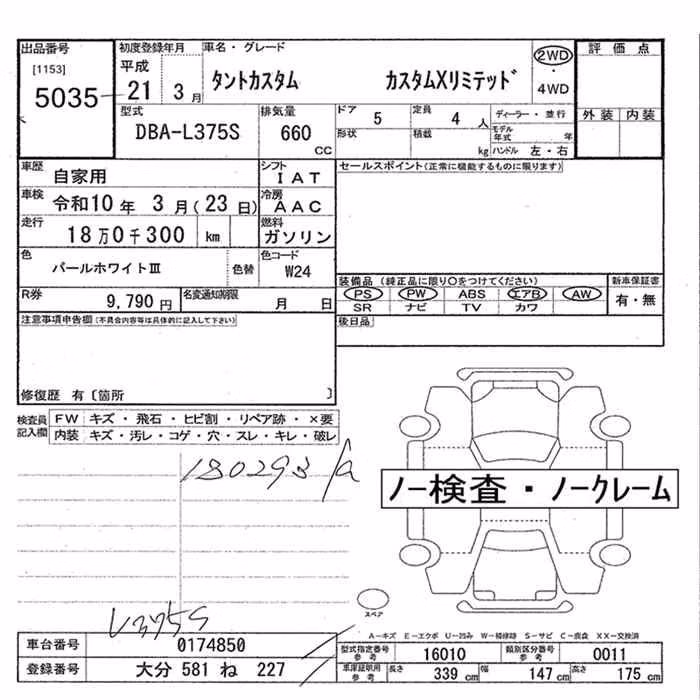 出品番号 初度登録年月 車名・グレード 2WD 評価点
[1153] 平成 4WD
5035 21 3月 タントカスタム カスタムXリミテッド
型式 排気量 ドア 5 定員 4人 ディーラー・並行 外装 内装
DBA-L375S 660cc 形状 積載 kg モデル年式 年
ハンドル 左・右
車歴 自家用 シフト IAT セールスポイント(正常に機能するものに限ります)
車検 令和10年 3月(23日) 冷房 AAC
走行 18万0千300 km 燃料 ガソリン
色 パールホワイトIII 色替 色コード W24
装備品(純正品に限り〇をつけてください) 新車保証書
R券 9,790円 名変通知期限 月 日 PS PW ABS エアB AW 有・無
SR ナビ TV カワ
注意事項申告欄(不具合内容等は具体的に記入して下さい) 後日品
修復歴 有〔箇所 〕
検査員記入欄 FW キズ・飛石・ヒビ割・リペア跡・×要
内装 キズ・汚レ・コゲ・穴・スレ・キレ・破レ
180293
ノー検査・ノークレーム
スペア
L375S
A-キズ E-エクボ U-凹み W-補修跡 S-サビ C-腐食 XX-交換済
車台番号 0174850 型式指定番号参考 16010 類別区分番号参考 0011
登録番号 大分 581 ね 227 車庫証明用参考 長さ 339cm 幅 147cm 高さ 175cm